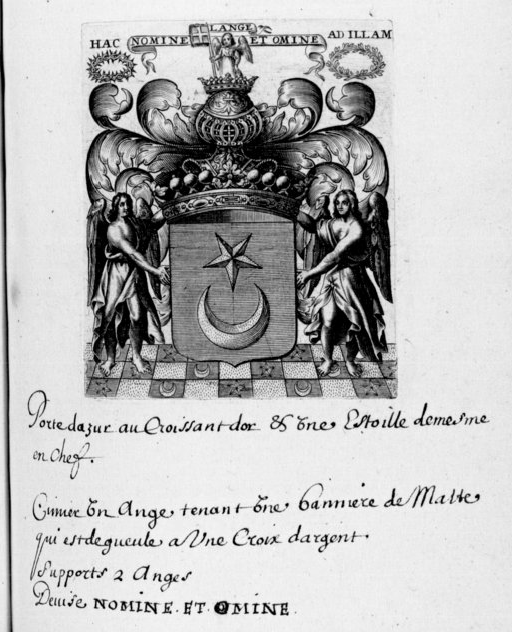 LANGE
HAC NOMINE ET OMINE AD ILLAM
Porte dazur au Croissant dor & Une Estoille demesme
en chef.
Cimier Un Ange tenant Une banniere de Malte
qui est de gueule a Une Croix dargent.
Supports 2 Anges
Devise NOMINE. ET. OMINE.